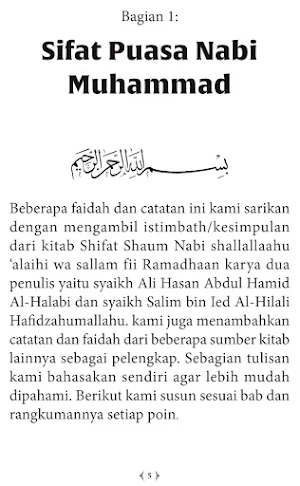 Bagian 1:
Sifat Puasa Nabi
Muhammad
بسم الله الرحمن الرحيم
Beberapa faidah dan catatan ini kami sarikan
dengan mengambil istimbath/kesimpulan
dari kitab Shifat Shaum Nabi shallallaahu
‘alaihi wa sallam fii Ramadhaan karya dua
penulis yaitu syaikh Ali Hasan Abdul Hamid
Al-Halabi dan syaikh Salim bin Ied Al-Hilali
Hafidzahumallahu. kami juga menambahkan
catatan dan faidah dari beberapa sumber kitab
lainnya sebagai pelengkap. Sebagian tulisan
kami bahasakan sendiri agar lebih mudah
dipahami. Berikut kami susun sesuai bab dan
rangkumannya setiap poin.
5